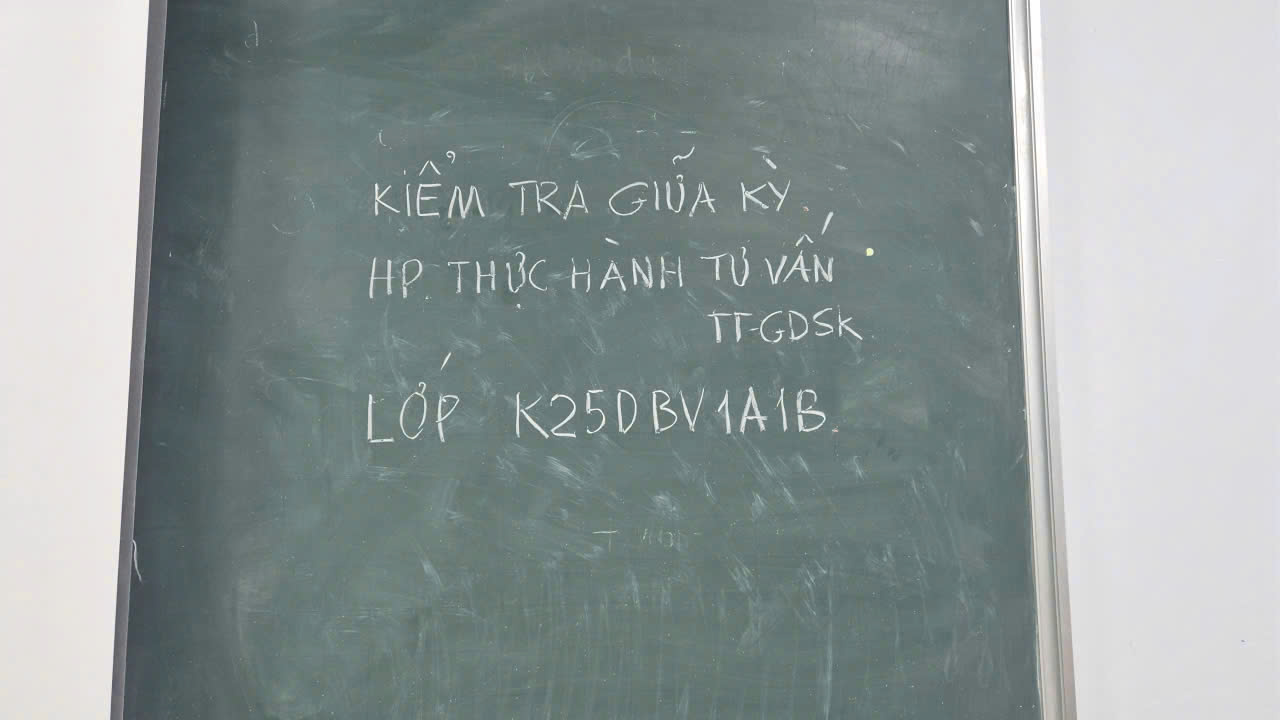 KIỂM TRA GIỮA KỲ.
HP. THỰC HÀNH TƯ VẤN
TT-GDSK.
LỚP K25DBV1A1B.